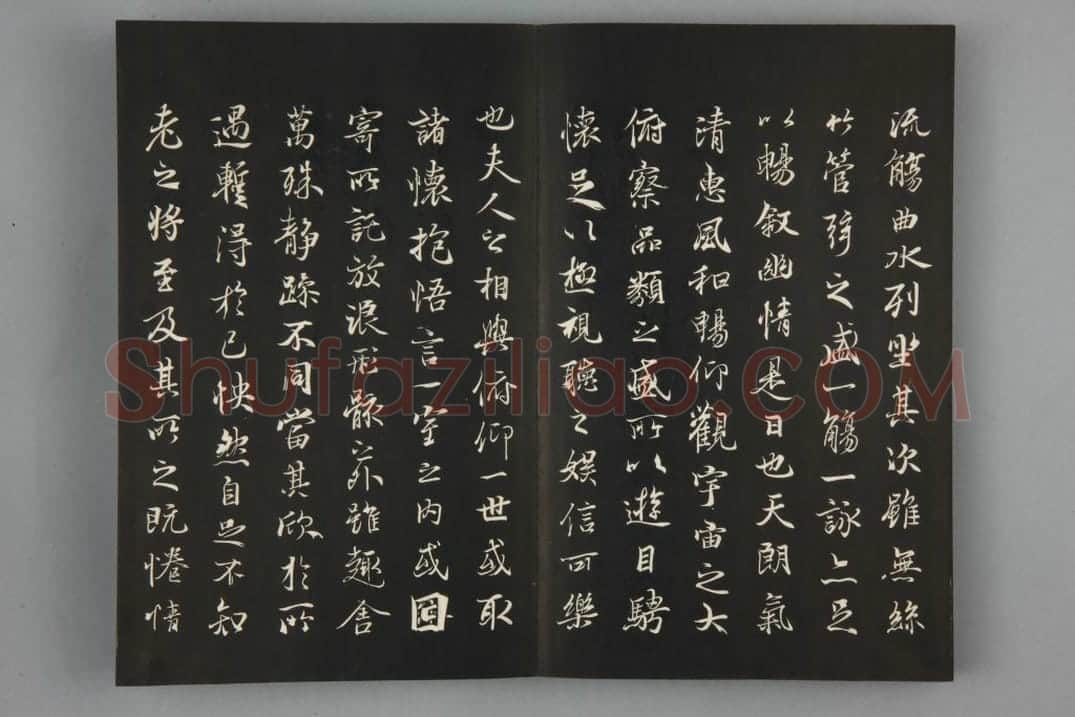 流觴曲水列坐其次雖無絲
竹管弦之盛一觴一詠亦足
以暢敘幽情是日也天朗氣
清惠風和暢仰觀宇宙之大
俯察品類之盛所以遊目騁
懷足以極視聽之娛信可樂
也夫人之相與俯仰一世或取
諸懷抱悟言一室之內或因
寄所託放浪形骸之外雖趣舍
萬殊靜躁不同當其欣於所
遇暫得於己怏然自足不知
老之將至及其所之既惓情
Shufaziliao.COM